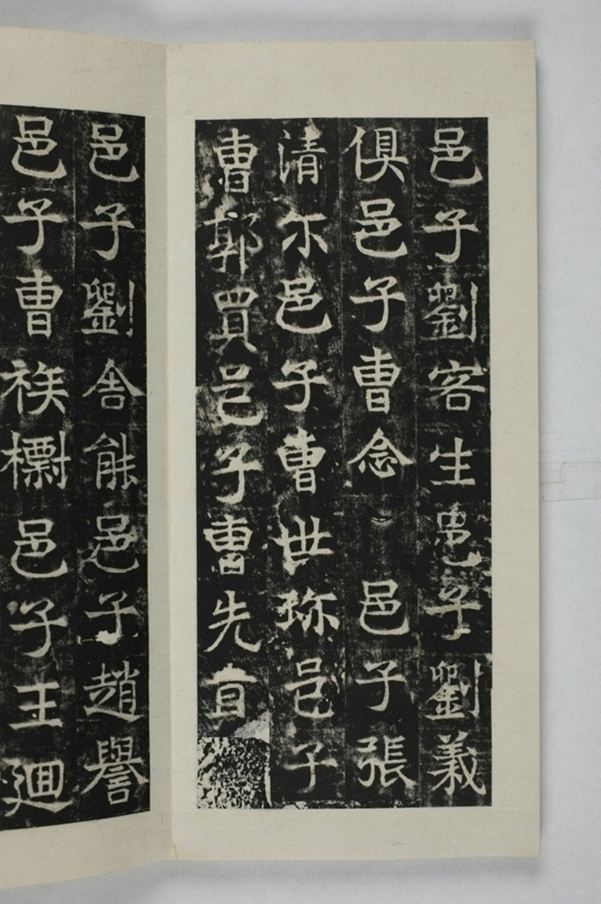 邑子劉客生邑子劉義
俱邑子曹念邑子張
清尒邑子曹世弥邑子
曹郭買邑子曹先宜
邑子劉舍䏻邑子趙譽
邑子曹族邑子王廻